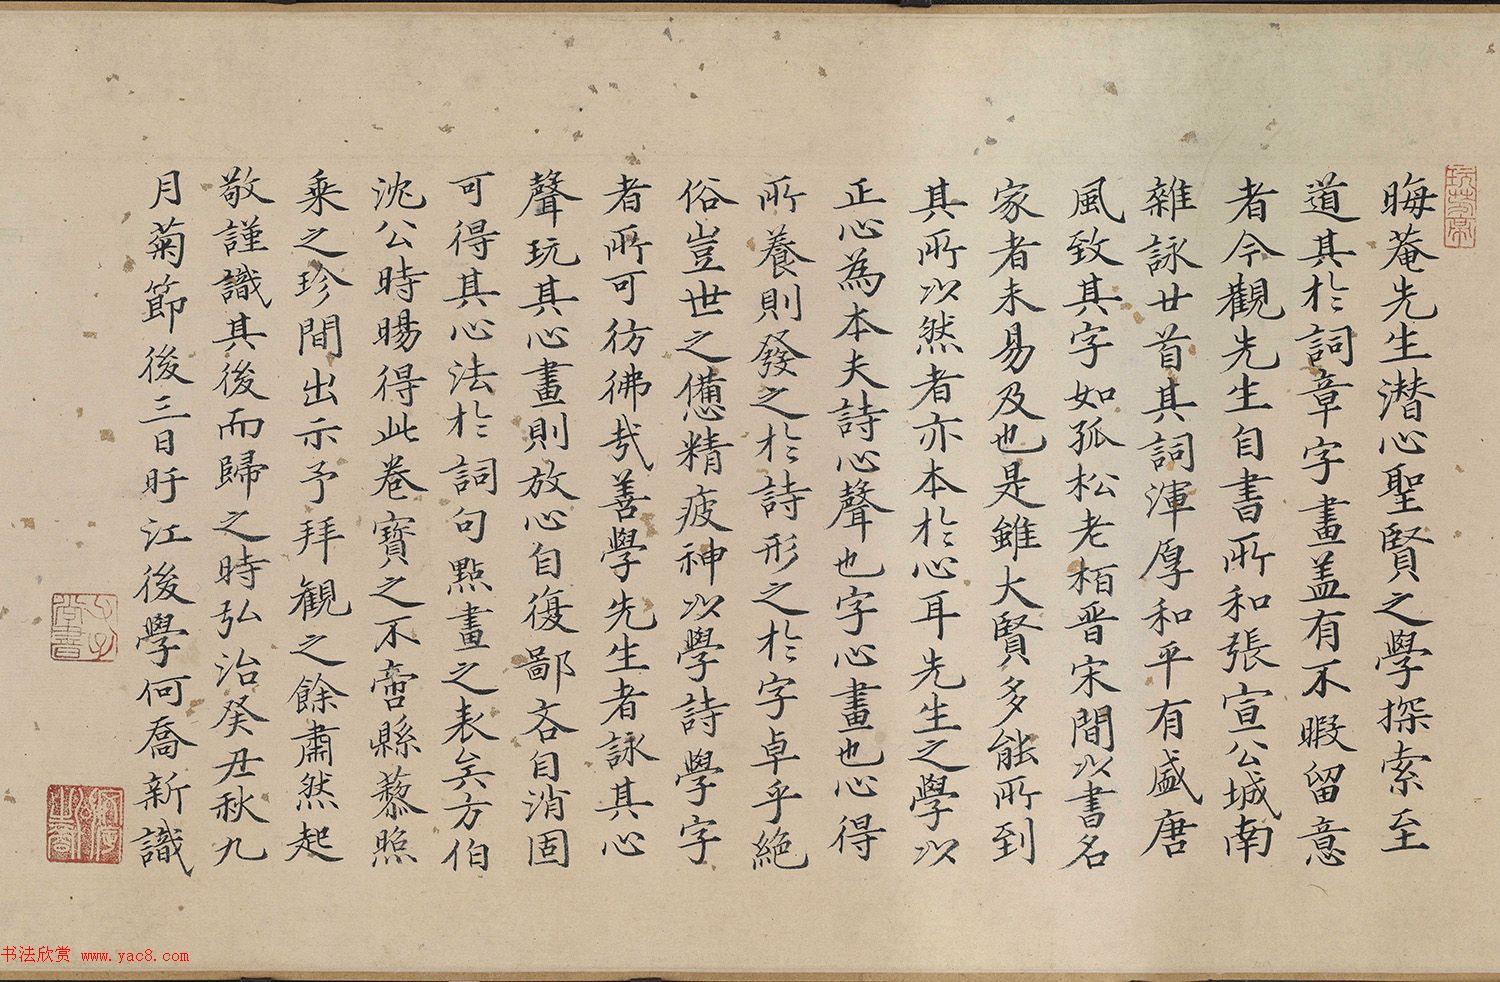 晦菴先生潛心聖賢之學探索至
道其於詞章字畫盖有不暇留意
者今觀先生自書所和張宣公城南
雜詠廿首其詞渾厚和平有盛唐
風致其字如孤松老栢晋宋間以書名
家者未易及也是雖大賢多能所到
其所以然者亦本於心耳先生之學以
正心為本夫詩心聲也字心畫也心得
所養則發之於詩形之於字卓乎絕
俗豈世之憊精疲神以學詩學字
者所可彷彿哉善學先生者詠其心
聲玩其心畫則放心自復鄙吝自消固
可得其心法於詞句點畫之表矣方伯
沈公時暘得此卷寶之不啻縣藜照
乘之珍間出示予拜觀之餘肅然起
敬謹識其後而歸之時弘治癸丑秋九
月菊節後三日盱江後學何喬新識
书法欣赏 www.yac8.com